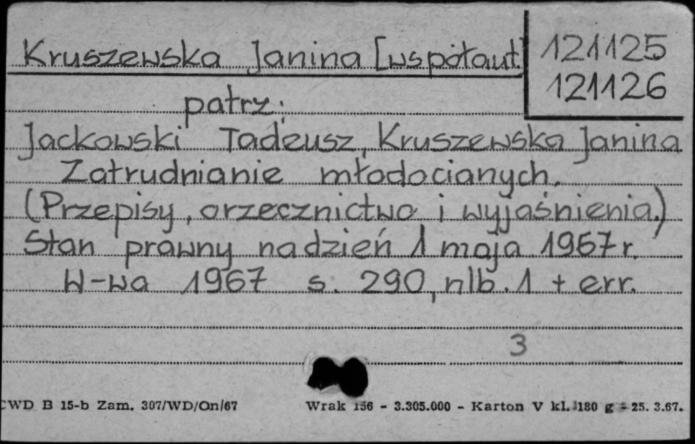 Kruszewska Janina [współaut]
121125
121126
patrz:
Jackowski Tadeusz, Kruszewska Janina
Zatrudnianie młodocianych.
(Przepisy, orzecznictwo i wyjaśnienia.)
Stan prawny na dzień 1 maja 1967 r.
W-wa 1967 s. 290, nlb. 1 + err.
3
CWD B 15-b Zam. 307/WD/On/67 Wrak 156 - 3.305.000 - Karton V kl. 180 g - 25. 3.67.